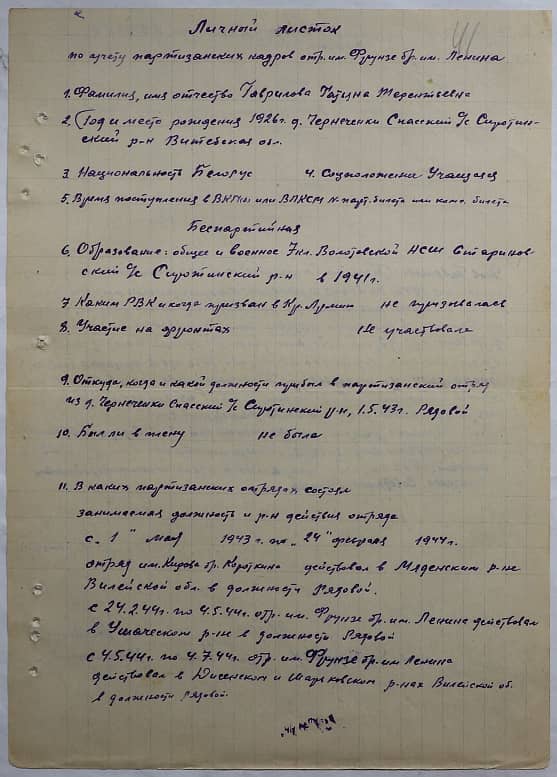 Личный листок
по учету партизанских кадров отр. им. Фрунзе бр. им. Ленина
1. Фамилия, имя отчество Гаврилова Татьяна Терентьевна
2. Год и место рождения 1926 г. д. Чернеченки Спасский С/с Сиротин-
ский р-н Витебская обл.
3. Национальность Белорус 4. Соцположение Учащаяся
5. Время поступления в ВКП(б) или ВЛКСМ № парт. билета или комс. билета
Беспартийная
6. Образование: общее и военное 7 кл. Волотовской НСШ Старинов-
ский С/с Сиротинский р-н в 1941 г.
7. Каким РВК и когда призван в Кр. Армию не призывалась
8. Участие на фронтах Не участвовала
9. Откуда, когда и какой должности прибыл в партизанский отряд
из д. Чернеченки Спасский С/с Сиротинский р-н, 1.5.43 г. Рядовой
10. Был ли в плену не была
11. В каких партизанских отрядах состоял
занимаемая должность и р-н действия отряда
с „1" мая 1943 г. по „24" февраля 1944 г.
отряд им. Кирова бр. Короткина действовал в Мяденским р-не
Вилейской обл. в должности Рядовой.
с 24.2.44 г. по 4.5.44 г. отр. им. Фрунзе бр. им. Ленина действовал
в Ушачском р-не в должности Рядовой
с 4.5.44 г. по 4.7.44 г. отр. им. Фрунзе бр. им. Ленина
действовал в Дисенском и Шарковском р-нах Вилейской об.
в должности Рядовой.